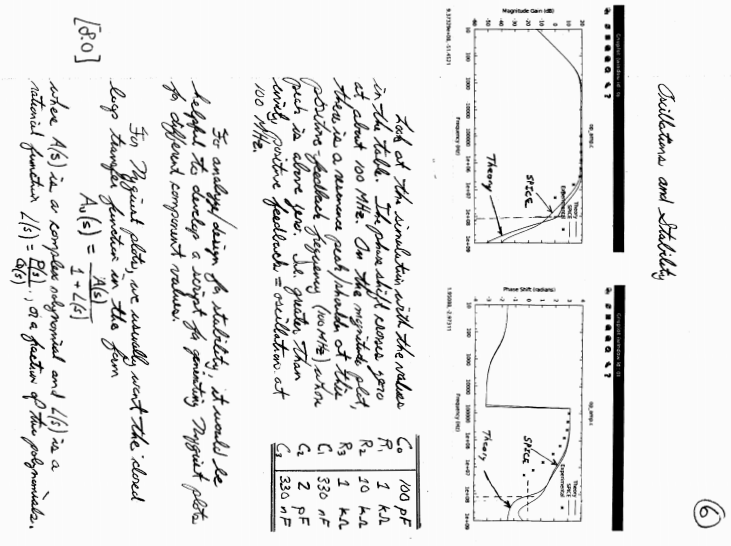 Oscillations and Stability
6
Gnuplot (window id : 0)
op_amp.c
Theory
SPICE
Experimental
SPICE
Theory
Magnitude Gain (dB)
20
10
0
-10
-20
-30
-40
-50
-60
10
100
1000
10000
100000
1e+06
1e+07
1e+08
1e+09
Frequency (Hz)
Gnuplot (window id : 0)
op_amp.c
Theory
SPICE
Experimental
SPICE
Theory
Phase Shift (radians)
4
3
2
1
0
-1
-2
-3
-4
10
100
1000
10000
100000
1e+06
1e+07
1e+08
1e+09
Frequency (Hz)
Look at the simulation with the values
in the table. The phase shift crosses zero
at about 100 MHz. On the magnitude plot,
there is a resonance peak/shoulder at this
positive feedback frequency (100 MHz) whose
peak is above zero. I.e. greater than
unity positive feedback = oscillation at
100 MHz.
C0 100 pF
R1 1 kΩ
R2 10 kΩ
R3 1 kΩ
C1 330 nF
C2 2 pF
C3 330 nF
For analysis/design for stability, it would be
helpful to develop a script for generating Nyquist plots
for different component values.
For Nyquist plots, we usually want the closed
loop transfer function in the form
Av(s) = A(s) / 1 + L(s)
where A(s) is a complex polynomial and L(s) is a
rational function L(s) = P(s)/Q(s), or a fraction of two polynomials.
[8.0]